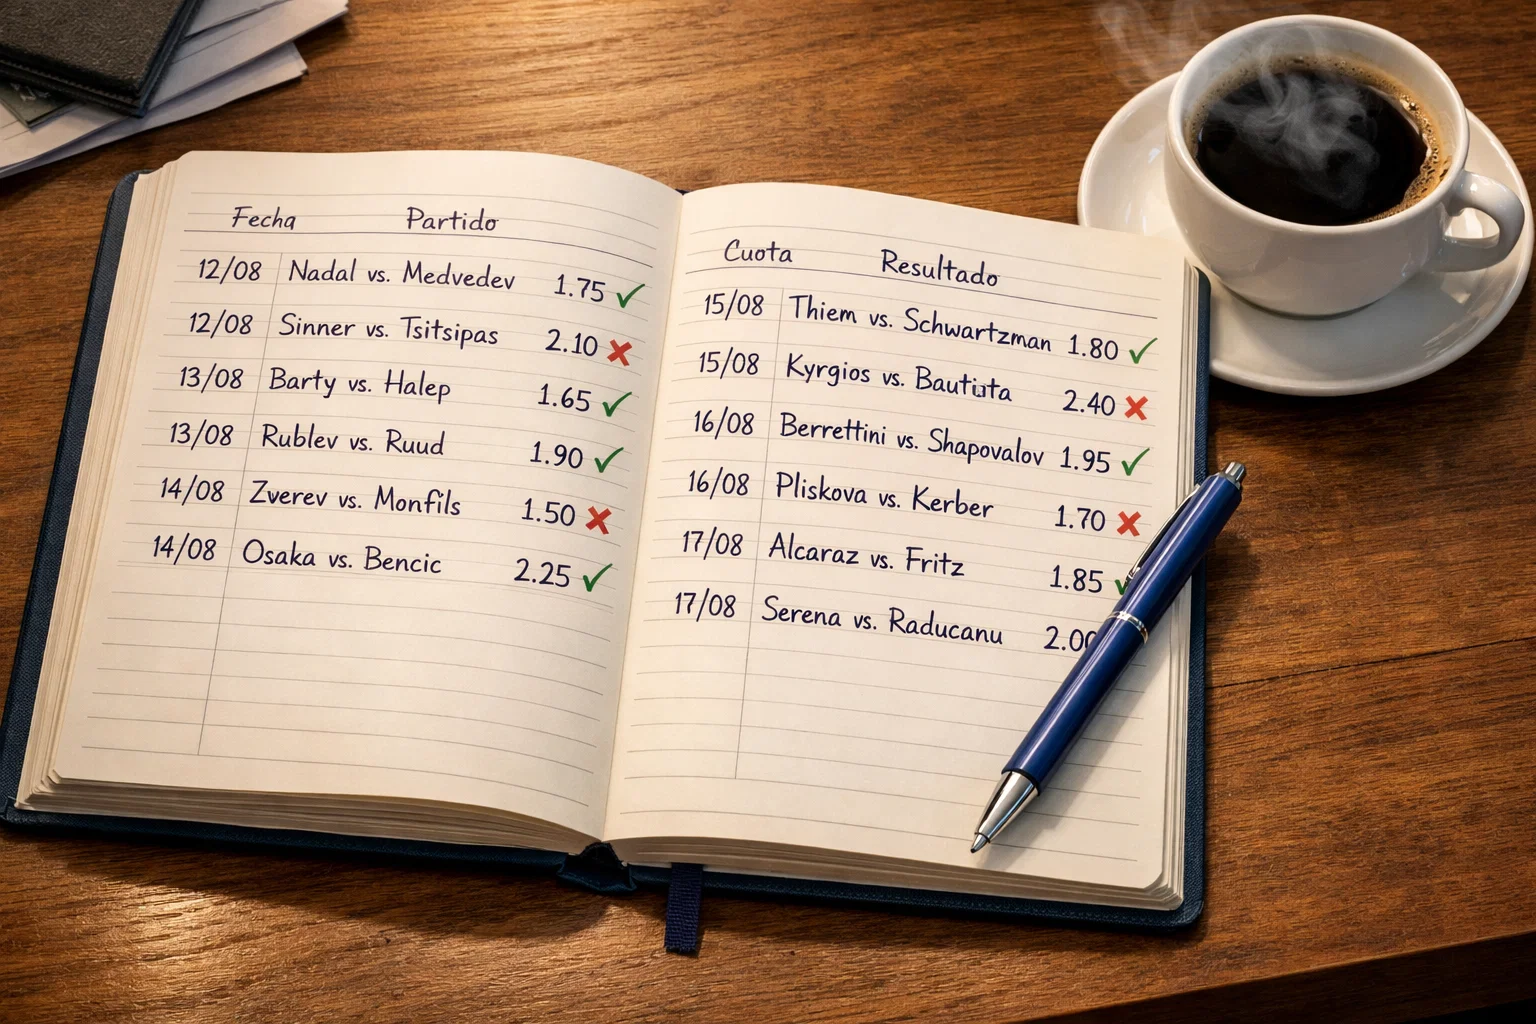 Fecha Partido
12/08 Nadal vs. Medvedev 1.75 ✓
12/08 Sinner vs. Tsitsipas 2.10 ✗
13/08 Barty vs. Halep 1.65 ✓
13/08 Rublev vs. Ruud 1.90 ✓
14/08 Zverev vs. Monfils 1.50 ✗
14/08 Osaka vs. Bencic 2.25 ✓
Cuota Resultado
15/08 Thiem vs. Schwartzman 1.80 ✓
15/08 Kyrgios vs. Bautista 2.40 ✗
16/08 Berrettini vs. Shapovalov 1.95 ✓
16/08 Pliskova vs. Kerber 1.70 ✗
17/08 Alcaraz vs. Fritz 1.85 ✓
17/08 Serena vs. Raducanu 2.00